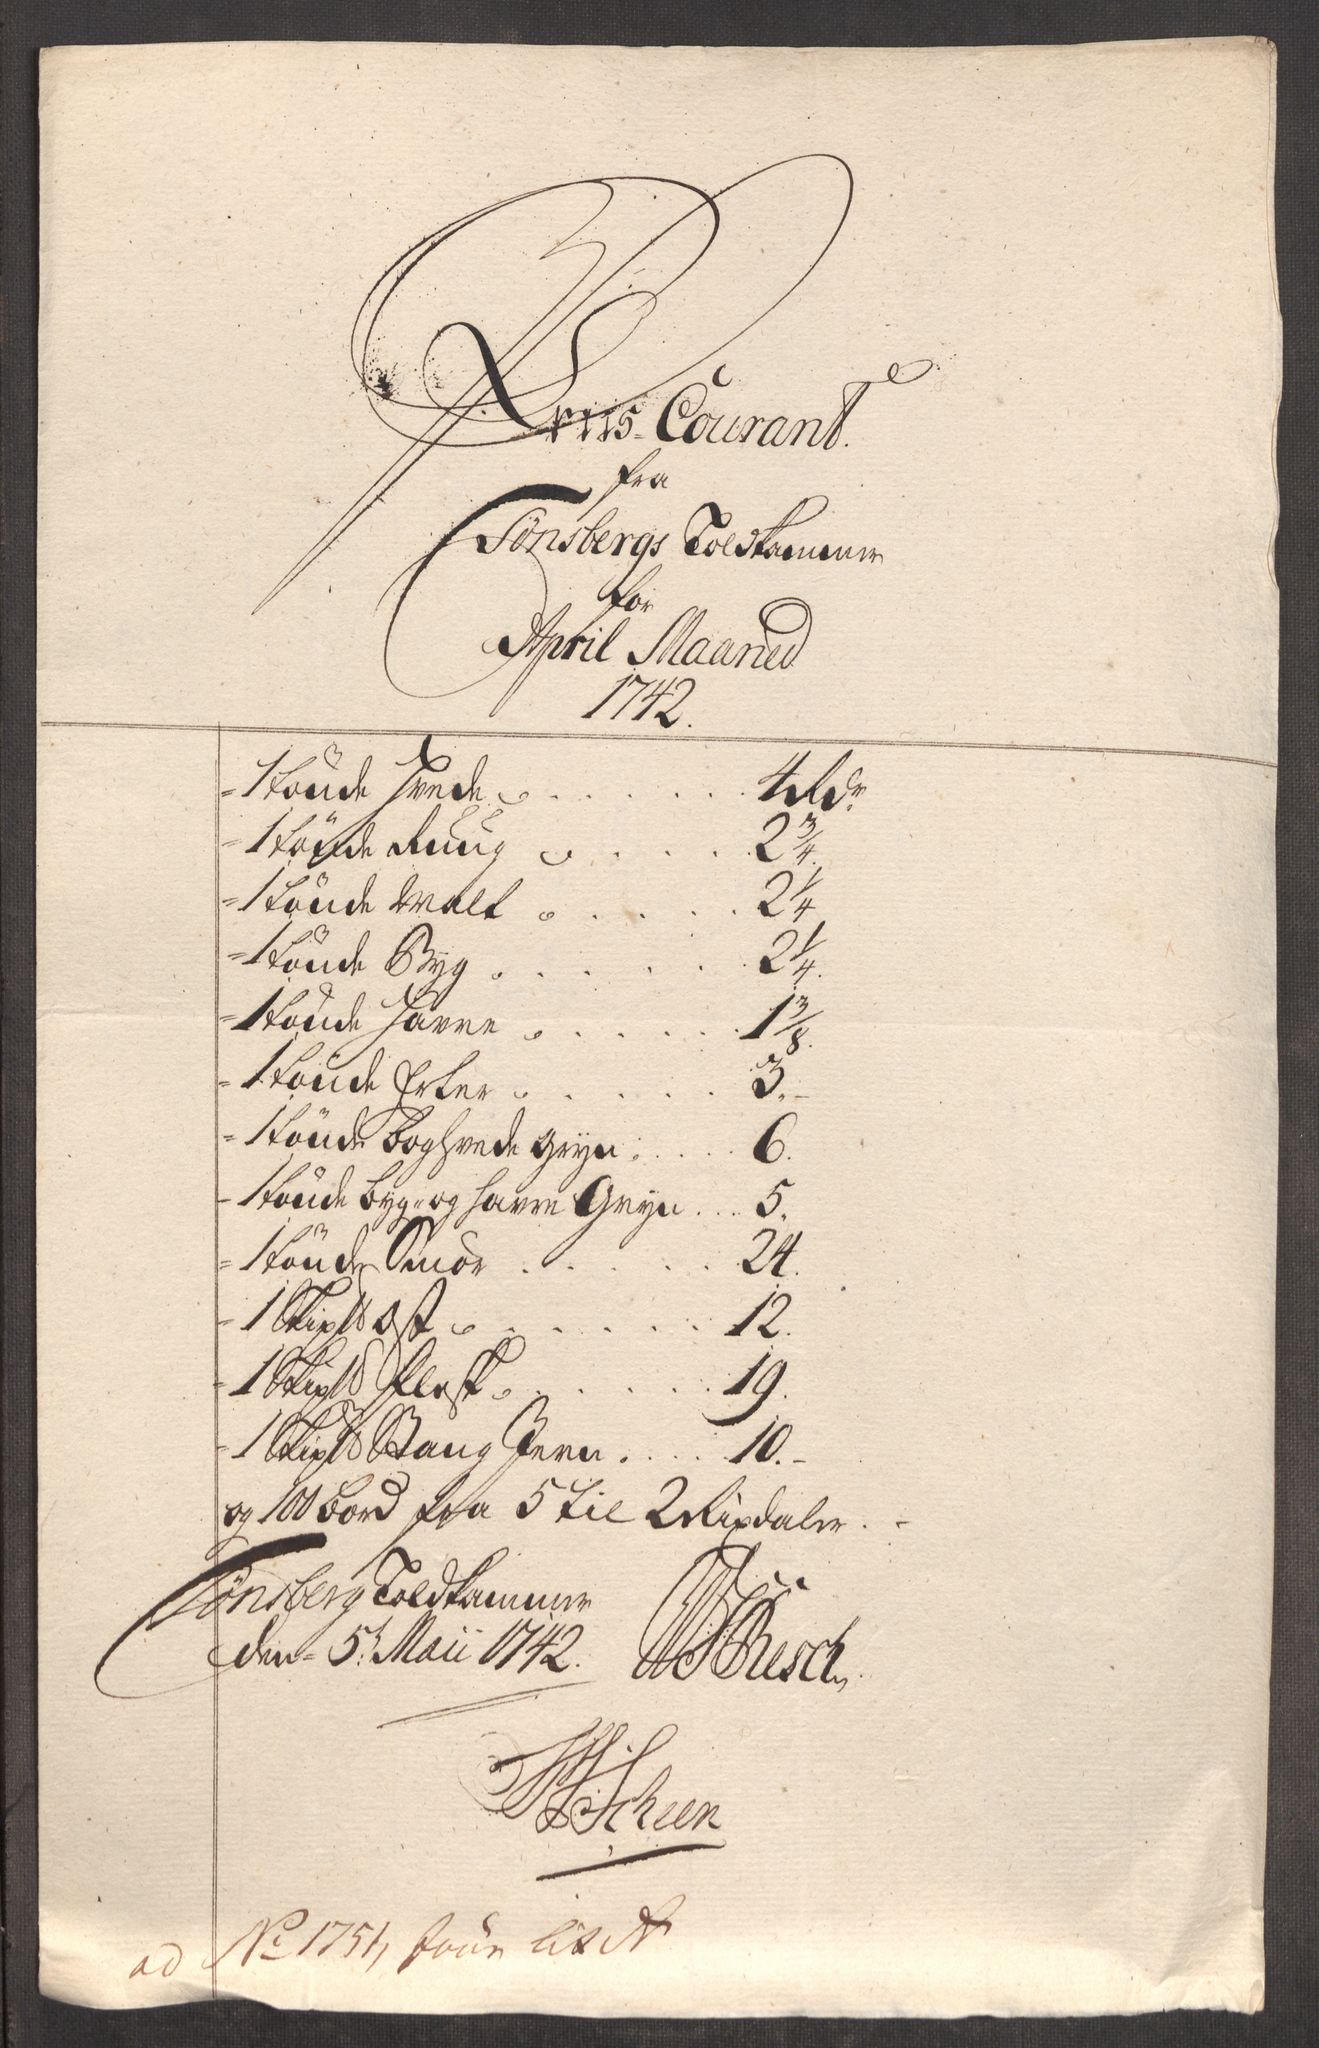 Priis-Courant
fra
Tönsbergs Toldkammer
for
April Maaned
1742.
- 1 tönde Hvede . . . . . 4 Rdr
- 1 tönde Ruug . . . . 2 3/4.
- 1 tönde Malt . . . . . 2 1/4
- 1 tönde Byg . . . . . 2 1/4.
- 1 tönde Havre . . . . . 1 3/8.
- 1 tönde Erter . . . . . 3.-
- 1 tönde boghvede Gryn . . . . 6.
- 1 tönde byg- og havre Gryn . . . 5.
- 1 tönde Smör . . . . . 24.
- 1 Skip℔ Ost . . . . . . 12.
- 1 Skip℔ flesk . . . . . 19.
- 1 Skip℔ Stang Jern . . . . 10.-
og 100 bord fra 5 til 2 Rixdaler. -
Tönsberg Toldkammer
den 5t Maii 1742.
Resch
Scheen
ad No 1751,